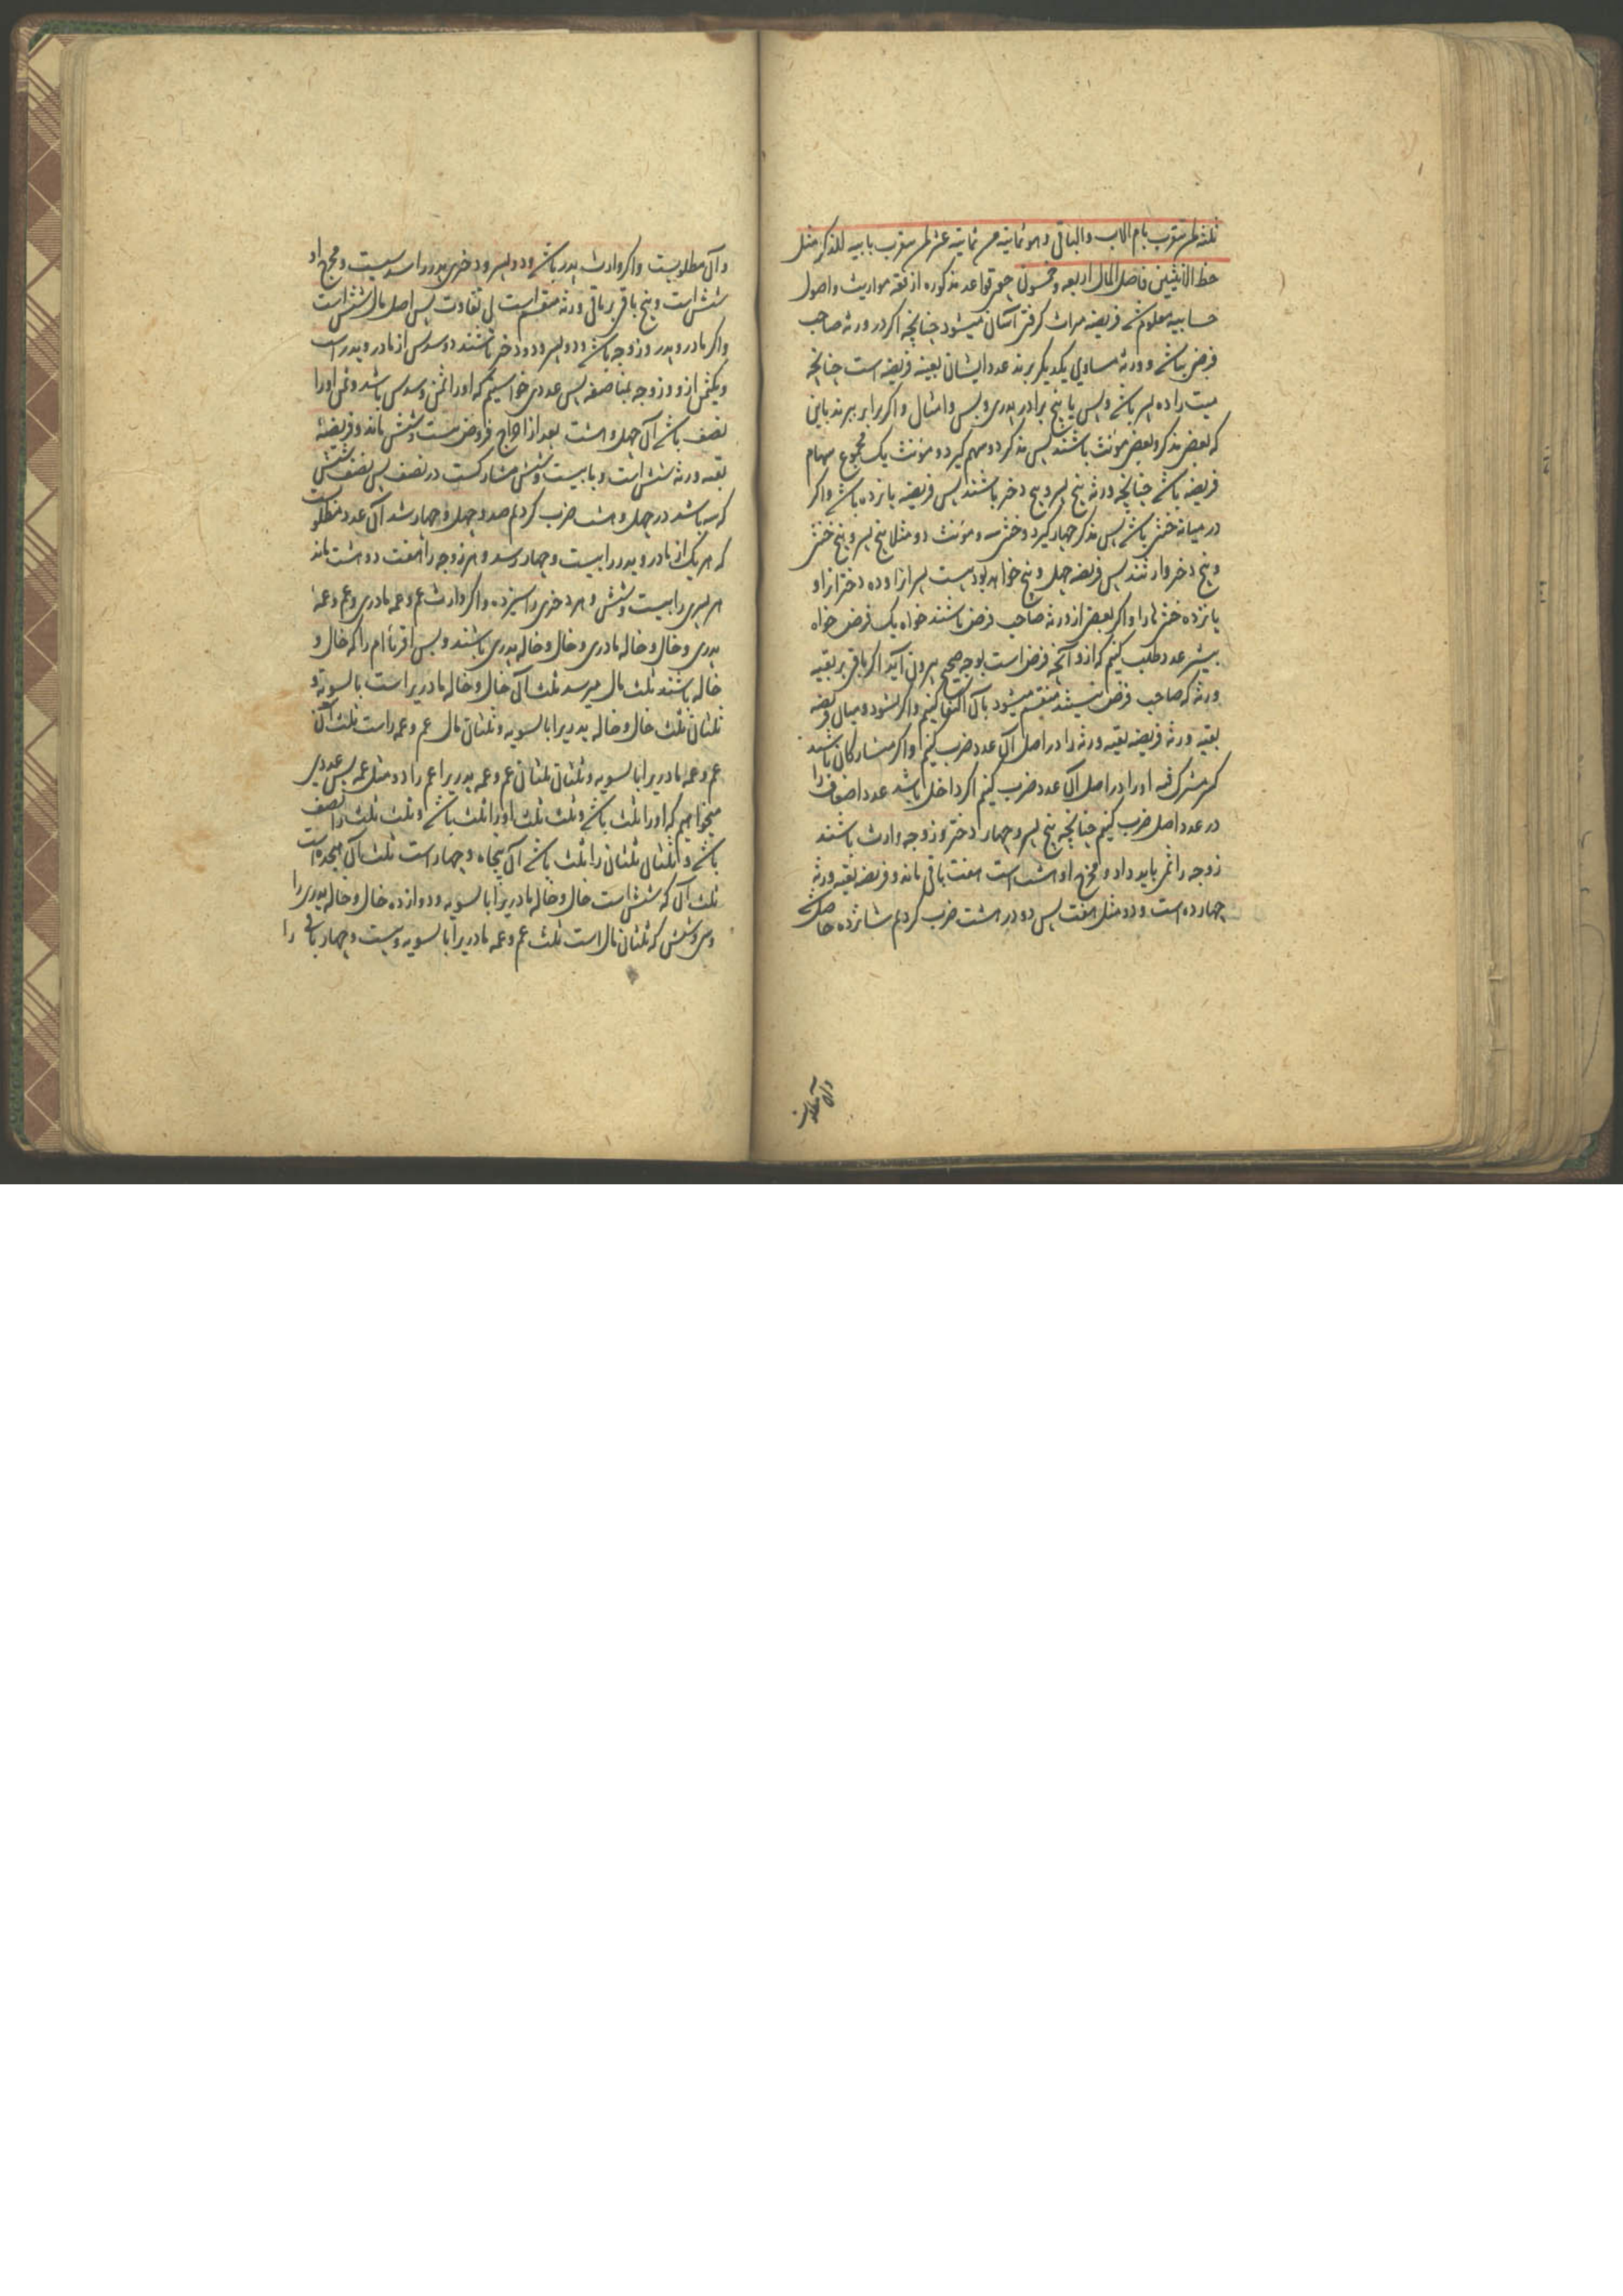 ثلثه لمن يتقرب بام الاب والباقی وهو ثمانيه من ثمانيه عشر لمن يتقرب بابيه للذكر مثل
حظ الانثيين فاصل المال اربعه وخمسون چون قواعد مذكوره از فقه مواريث واصول
حسابيه معلوم شد فريضه ميراث كرفتن آسان ميشود چنانچه اكر در ورثه صاحب
فرض نباشد و ورثه مساوی يكديكر برند عدد ايشان بعينه فريضه است چنانچه
ميت را ده پسر باشد وبس يا پنج برادر پدری وبس وامثال واكر برابر نبرند باين
كه بعض مذكر وبعض مونث باشند پس مذكر دو سهم كيرد و مونث يك مجموع سهام
فريضه باشد چنانچه ورثه پنج پسر و پنج دختر باشند پس فريضه پانزده باشد واكر
در ميانه خنثی باشد پس مذكر چهار كيرد وخنثی سه ومؤنث دو مثلا پنج پسر و پنج خنثی
و پنج دختر وارثند پس فريضه چهل و پنج خواهد بود بيست پسر را از او ده دختر را از او
پانزده خنثی ها را واكر بعض از ورثه صاحب فرض باشند خواه يك فرض خواه
بيشتر عدد طلب كنيم كه ازو آنچه فرض است بوجه صحيح بيرون آيد اكر باقی بر بقيه
ورثه كه صاحب فرض نيستند منقسم ميشود بآن اكتفا كنيم واكر نشود و ميان فريضه
بقيه ورثه فريضه بقيه ورثه را در اصل آن عدد ضرب كنيم واكر متشاركان باشند
كسر مشترك فيه اورا در اصل آن عدد ضرب كنيم اكر داخل باشد عدد اضعاف را
در عدد اصل ضرب كنيم چنانچه پنج پسر و چهار دختر و زوجه وارث باشند
زوجه را ثمن بايد داد و مخرج او هشت است هفت باقی ماند و فريضه بقيه ورثه
چهارده است و دو مثل هفت پس دو در هشت ضرب كرديم شانزده حاصل شد
وآن مطلوبست
وآن مطلوبست واكر وارث پدر باشد ودو پسر ودختری پدر را سدسيست ومخرج او
شش است و پنج باقی بر باقی ورثه منقسم است بی تفاوت پس اصل مال شش است
واكر مادر و پدر و زوجه باشد ودو پسر ودو دختر باشند دو سدس از مادر و پدر است
و يكثمن از دو زوجه بمناصفه پس عددی خواستيم كه اورا ثمن وسدس باشد وثمن اورا
نصف باشد آن چهل وهشت بعد از اخراج فروض بيست وشش ماند وفريضهٔ
بقيه ورثه شش است و با بيست وشش مشاركست در نصف پس نصف شش
كه سه باشد در چهل وهشت ضرب كرديم صد و چهل و چهار شد آن عدد مطلوبست
كه هر يك از مادر و پدر را بيست و چهار رسد و هر زوجه را هفت دو هشت ماند
هر پسری را بيست وشش و هر دختری را سيزده واكر وارث عم وعمه مادری وعم وعمهٔ
پدری وخال وخاله مادری وخال وخاله پدری باشند وبس اقرباء ام را كه خال و
خاله باشند ثلث مال ميرسد ثلث آن خال وخاله مادری را است بالسويه و
ثلثان ثلث خال وخاله پدری را بالسويه وثلثان مال عم وعمه راست ثلث آن
عم وعمه مادری را بالسويه وثلثان ثلثان عم وعمه پدری را عم را دو مثل عمه پس عددی
ميخواهيم كه اورا ثلث باشد وثلث ثلث اورا ثلث باشد وثلث ثلث را نصف
باشد و ثلثان ثلثان را ثلث باشد آن پنجاه و چهار است ثلث آن هيجده است
ثلث آن كه شش است خال وخاله مادری را بالسويه ودوازده خال وخاله پدری را
وسی وشش كه ثلثان مال است ثلث عم وعمه مادری را بالسويه وبيست و چهار باقی را